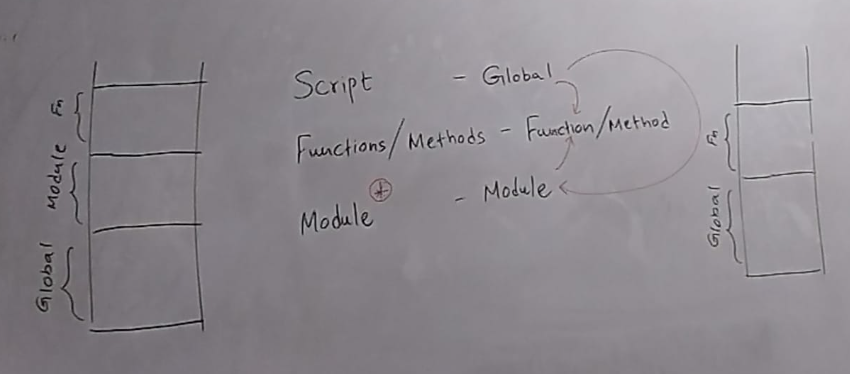 Fn
Module
Global
Script - Global
Functions/Methods - Function/Method
Module - Module
Fn
Global